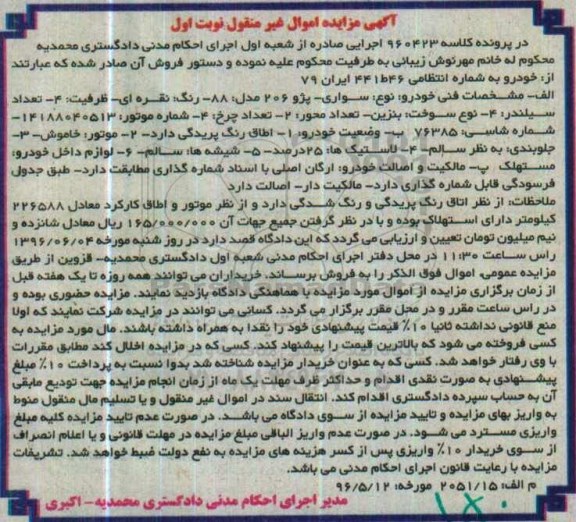 آگهی مزایده اموال غیر منقول نوبت اول
در پرونده کلاسه ۹۶۰۴۲۳ اجرایی صادره از شعبه اول اجرای احکام مدنی دادگستری محمدیه
محکوم له خانم مهرنوش زیبائی به طرفیت محکوم علیه نموده و دستور فروش آن صادر شده که عبارتند
از: خودرو به شماره انتظامی ۴۶ط۴۴۱ ایران ۷۹
الف- مشخصات فنی خودرو: نوع: سواری- پژو ۲۰۶ مدل: ۸۸- رنگ: نقره ای- ظرفیت: ۴- تعداد
سیلندر: ۴- نوع سوخت: بنزین- تعداد محور: ۲- تعداد چرخ: ۴- شماره موتور: ۱۴۱۸۸۰۴۰۵۱۳-
شماره شاسی: ۷۶۳۸۵ ب- وضعیت خودرو: ۱- اطاق رنگ پریدگی دارد- ۲- موتور: خاموش- ۳-
جلوبندی: به نظر سالم- ۴- لاستیک ها: ۲۵درصد- ۵- شیشه ها: سالم- ۶- لوازم داخل خودرو:
مستهلک پ- مالکیت و اصالت خودرو: ارگان اصلی با اسناد شماره گذاری مطابقت دارد- طبق جدول
فرسودگی قابل شماره گذاری دارد- مالکیت دار- اصالت دارد
ملاحظات: از نظر اتاق رنگ پریدگی و رنگ شدگی دارد و از نظر موتور و اطاق کارکرد معادل ۲۲۶۵۸۸
کیلومتر دارای استهلاک بوده و با در نظر گرفتن جمیع جهات آن ۱۶۵/۰۰۰/۰۰۰ ریال معادل شانزده و
نیم میلیون تومان تعیین و ارزیابی می گردد که این دادگاه قصد دارد در روز شنبه مورخه ۱۳۹۶/۰۶/۰۴
راس ساعت ۱۱:۳۰ در محل دفتر اجرای احکام مدنی شعبه اول دادگستری محمدیه- قزوین از طریق
مزایده عمومی، اموال فوق الذکر را به فروش برساند. خریداران می توانند همه روزه تا یک هفته قبل
از زمان برگزاری مزایده از اموال مورد مزایده با هماهنگی دادگاه بازدید نمایند. مزایده حضوری بوده و
در راس ساعت مقرر و در محل مقرر برگزار می گردد. کسانی می توانند در مزایده شرکت نمایند که اولا
منع قانونی نداشته ثانیا ۱۰٪ قیمت پیشنهادی خود را نقدا به همراه داشته باشند. مال مورد مزایده به
کسی فروخته می شود که بالاترین قیمت را پیشنهاد کند. کسی که در مزایده اخلال کند مطابق مقررات
با وی رفتار خواهد شد. کسی که به عنوان خریدار مزایده شناخته شد بدوا نسبت به پرداخت ۱۰٪ مبلغ
پیشنهادی به صورت نقدی اقدام و حداکثر ظرف مهلت یک ماه از زمان انجام مزایده جهت تودیع مابقی
آن به حساب سپرده دادگستری اقدام کند. انتقال سند در اموال غیر منقول و یا تسلیم مال منقول منوط
به واریز بهای مزایده و تایید مزایده از سوی دادگاه می باشد. در صورت عدم تایید مزایده کلیه مبلغ
واریزی مسترد می شود. در صورت عدم واریز الباقی مبلغ مزایده در مهلت قانونی و یا اعلام انصراف
از سوی خریدار ۱۰٪ واریزی پس از کسر هزینه های مزایده به نفع دولت ضبط خواهد شد. تشریفات
مزایده با رعایت قانون اجرای احکام مدنی می باشد.
م الف: ۲۰۵۱/۱۵ مورخه: ۹۶/۵/۱۲
مدیر اجرای احکام مدنی دادگستری محمدیه- اکبری